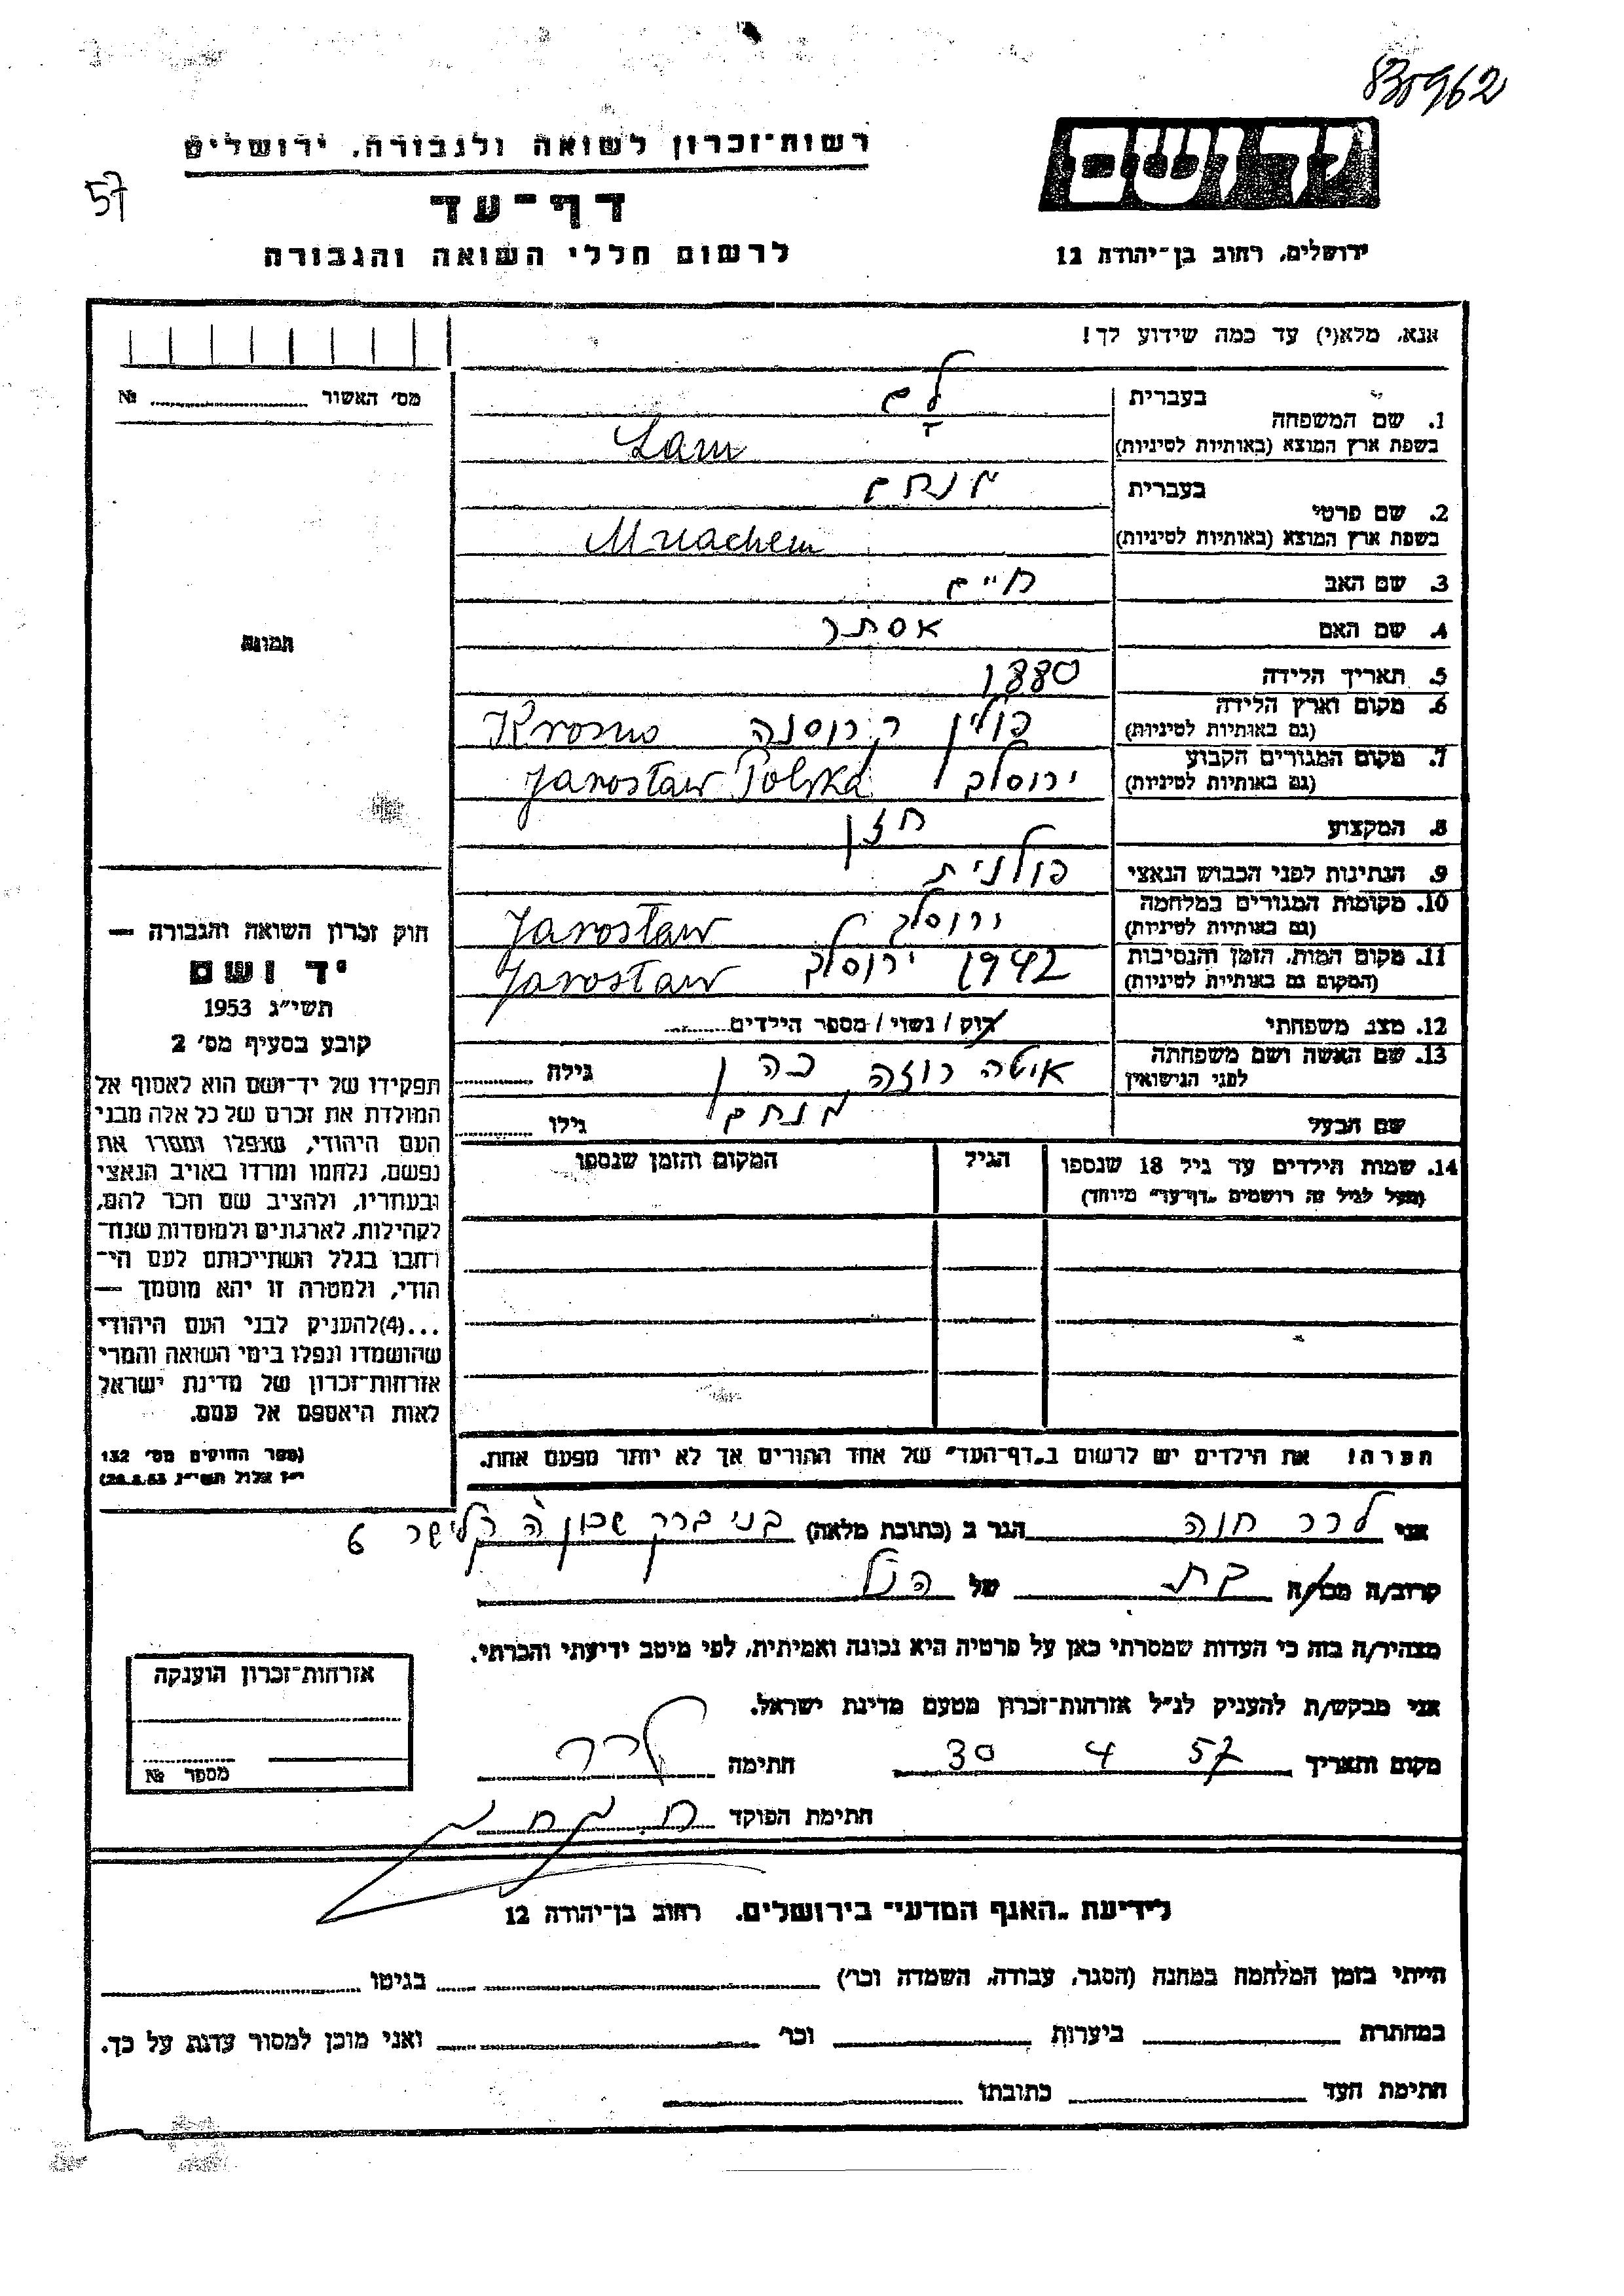 830962
רשות־זכרון לשואה ולגבורה, ירושלים
יד ושם
57
דף־עד
לרשום חללי השואה והגבורה
ירושלים, רחוב בן־יהודה 12
אנא, מלא(י) עד כמה שידוע לך!
מס' האשור № 
1. שם המשפחה
בעברית לם
בשפת ארץ המוצא (באותיות לטיניות) Lam
2. שם פרטי
בעברית מנחם
בשפת ארץ המוצא (באותיות לטיניות) Mnachem
3. שם האב חיים
4. שם האם אסתר
5. תאריך הלידה 1880
6. מקום וארץ הלידה פולין קרוסנה Krosno
(גם באותיות לטיניות)
7. מקום המגורים הקבוע ירוסלב Jarosław Polska
(גם באותיות לטיניות)
8. המקצוע חזן
9. הנתינות לפני הכבוש הנאצי פולנית
10. מקומות המגורים במלחמה ירוסלב Jarosław
(גם באותיות לטיניות)
11. מקום המות, הזמן והנסיבות 1942 ירוסלב Jarosław
(המקום גם באותיות לטיניות)
12. מצב משפחתי רוק / נשוי / מספר הילדים
13. שם האשה ושם משפחתה איטה רוזה כהן גילה
לפני הנישואין
שם הבעל מנחם גילו
14. שמות הילדים עד גיל 18 שנספו הגיל המקום והזמן שנספו
(מעל לגיל זה רושמים „דף־עד" מיוחד)
הערה! את הילדים יש לרשום ב„דף־העד" של אחד ההורים אך לא יותר מפעם אחת.
תמונה
חוק זכרון השואה והגבורה —
יד ושם
תשי״ג 1953
קובע בסעיף מס' 2
תפקידו של יד־ושם הוא לאסוף אל
המולדת את זכרם של כל אלה מבני
העם היהודי, שנפלו ומסרו את
נפשם, נלחמו ומרדו באויב הנאצי
ובעוזריו, ולהציב שם וזכר להם,
לקהילות, לארגונים ולמוסדות שנח־
רבו בגלל השתייכותם לעם הי־
הודי, ולמטרה זו יהא מוסמך —
...(4)להעניק לבני העם היהודי
שהושמדו ונפלו בימי השואה והמרי
אזרחות־זכרון של מדינת ישראל
לאות היאספם אל עמם.
(ספר החוקים מס' 132
י״ז אלול תשי״ג, 28.8.53)
אני לרר חנה הגר ב (כתובת מלאה) בני ברק שכון ה קלישר 6
קרוב/ה מכר/ה בת של הנ״ל
מצהיר/ה בזה כי העדות שמסרתי כאן על פרטיה היא נכונה ואמיתית, לפי מיטב ידיעתי והכרתי.
אני מבקש/ת להעניק לנ״ל אזרחות־זכרון מטעם מדינת ישראל.
מקום ותאריך 30 4 57 חתימה לרר
חתימת הפוקד
אזרחות־זכרון הוענקה
מספר №
לידיעת „האגף המדעי" בירושלים, רחוב בן־יהודה 12
הייתי בזמן המלחמה במחנה (הסגר, עבודה, השמדה וכו') בגיטו
במחתרת ביערות וכו' ואני מוכן למסור עדות על כך.
חתימת העד כתובתו